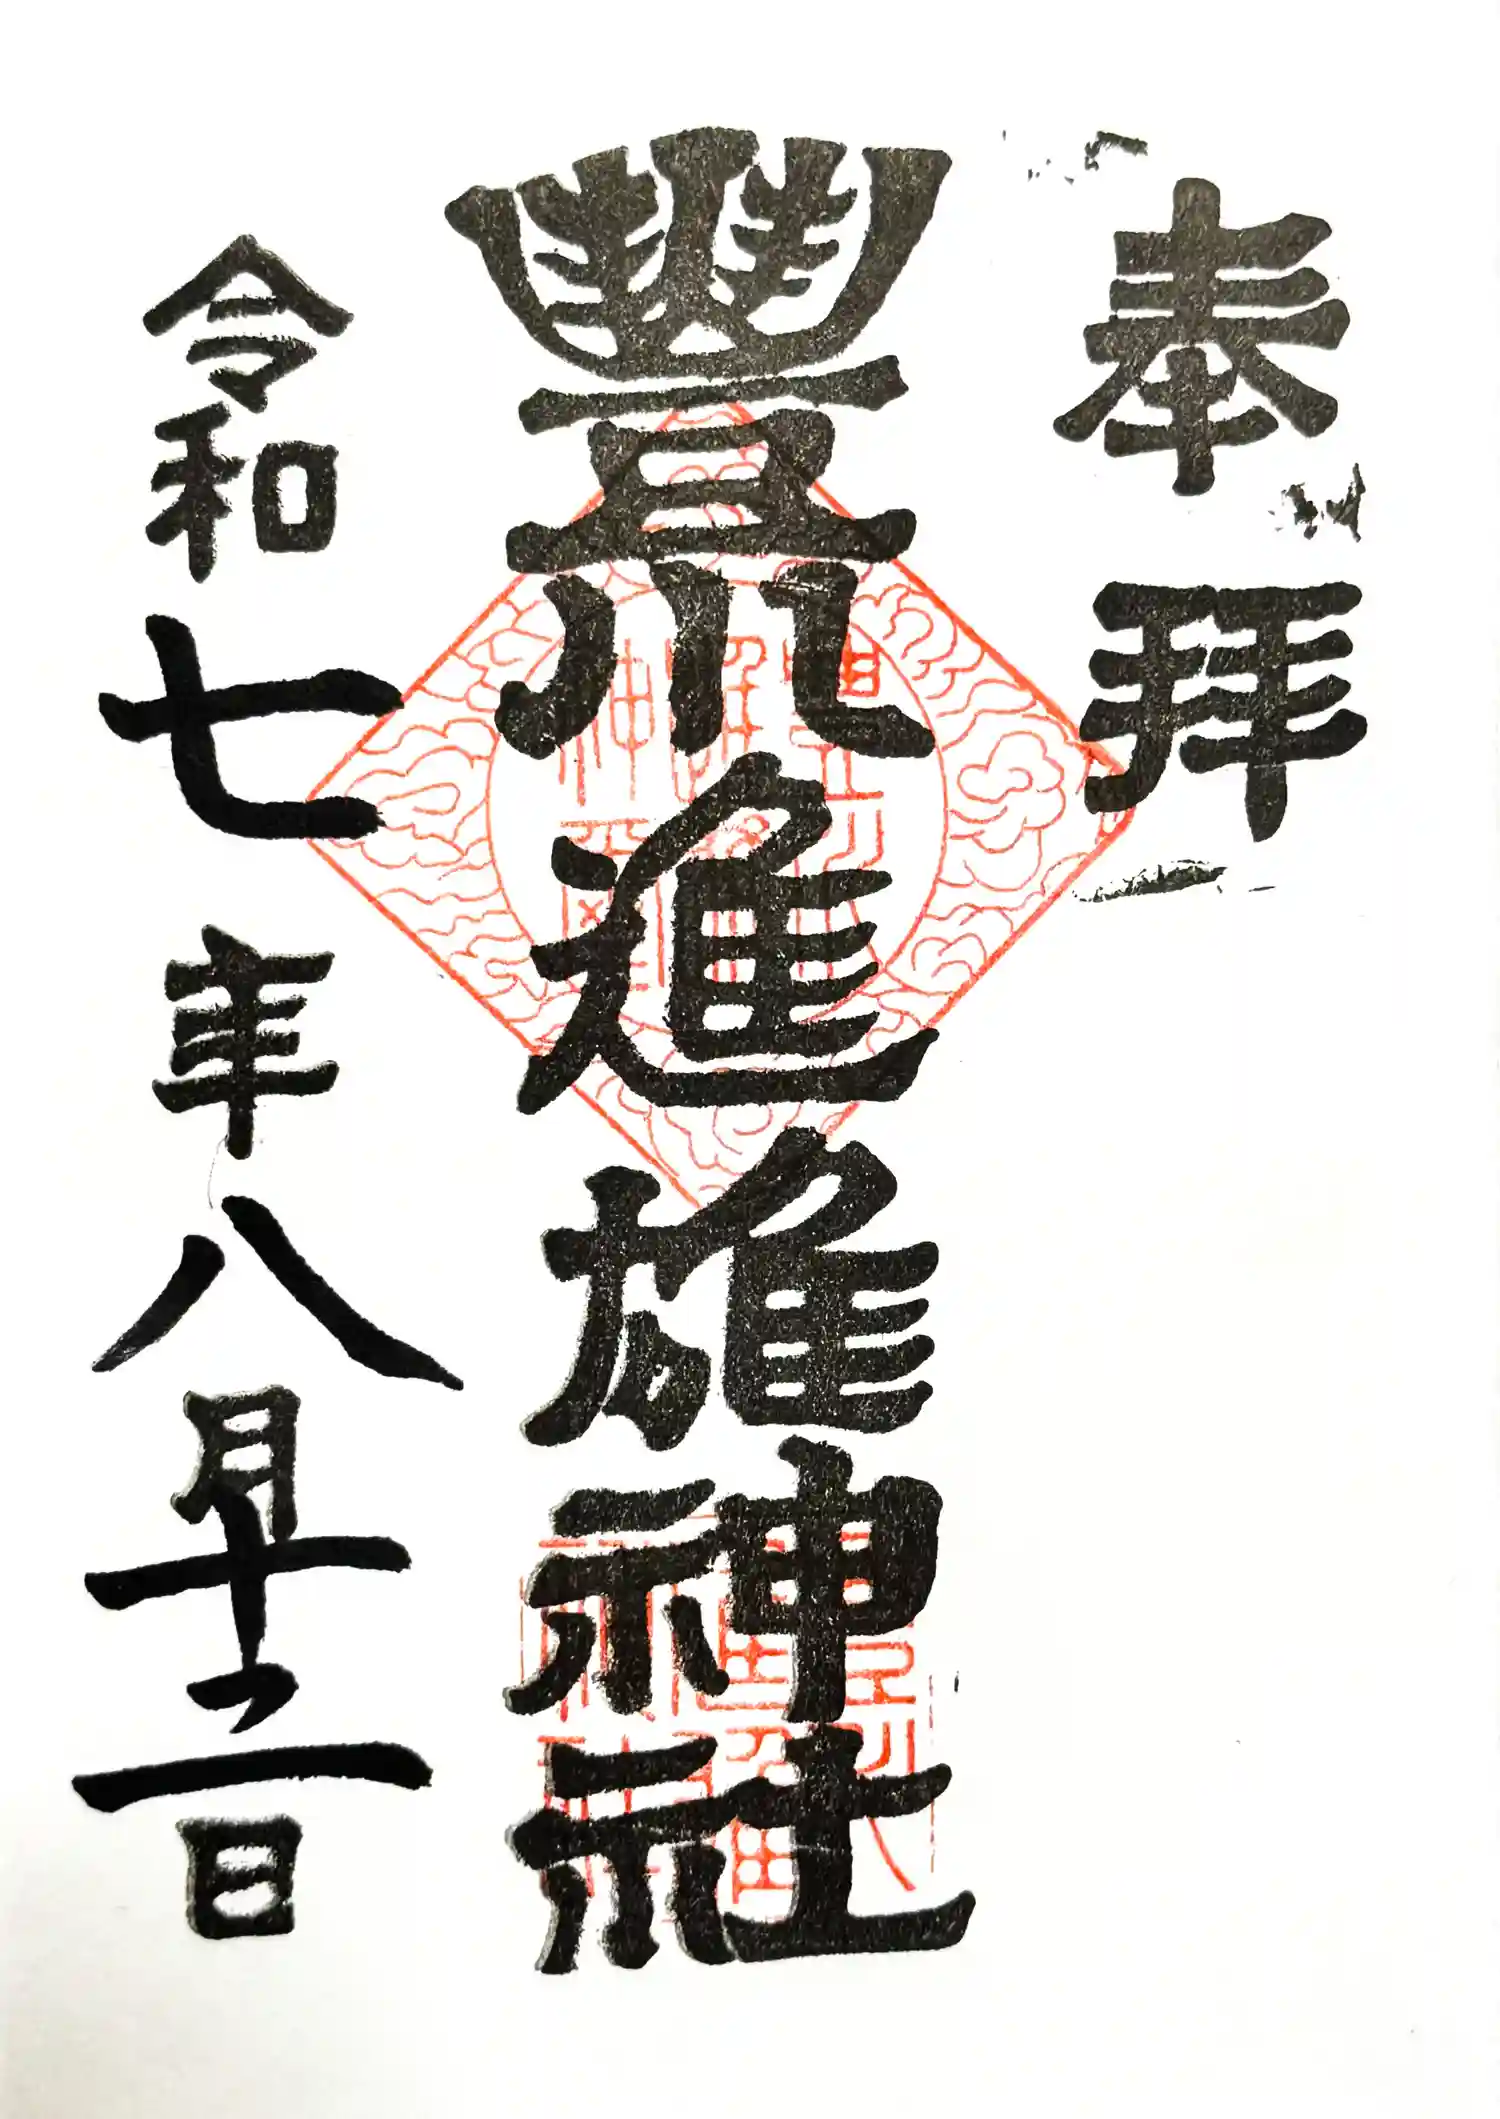 奉拝
豐川進雄神社
令和七年八月十二日